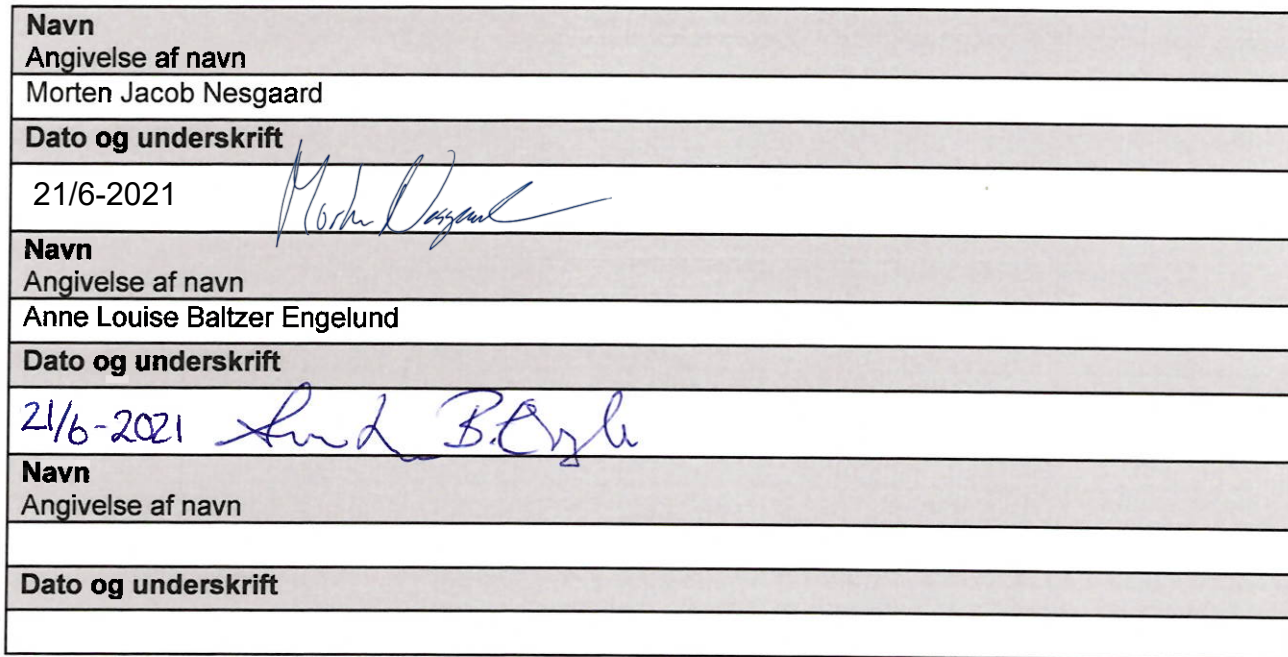 Navn
Angivelse af navn
Morten Jacob Nesgaard
Dato og underskrift
21/6-2021
Navn
Angivelse af navn
Anne Louise Baltzer Engelund
Dato og underskrift
21/6-2021
Navn
Angivelse af navn
Dato og underskrift